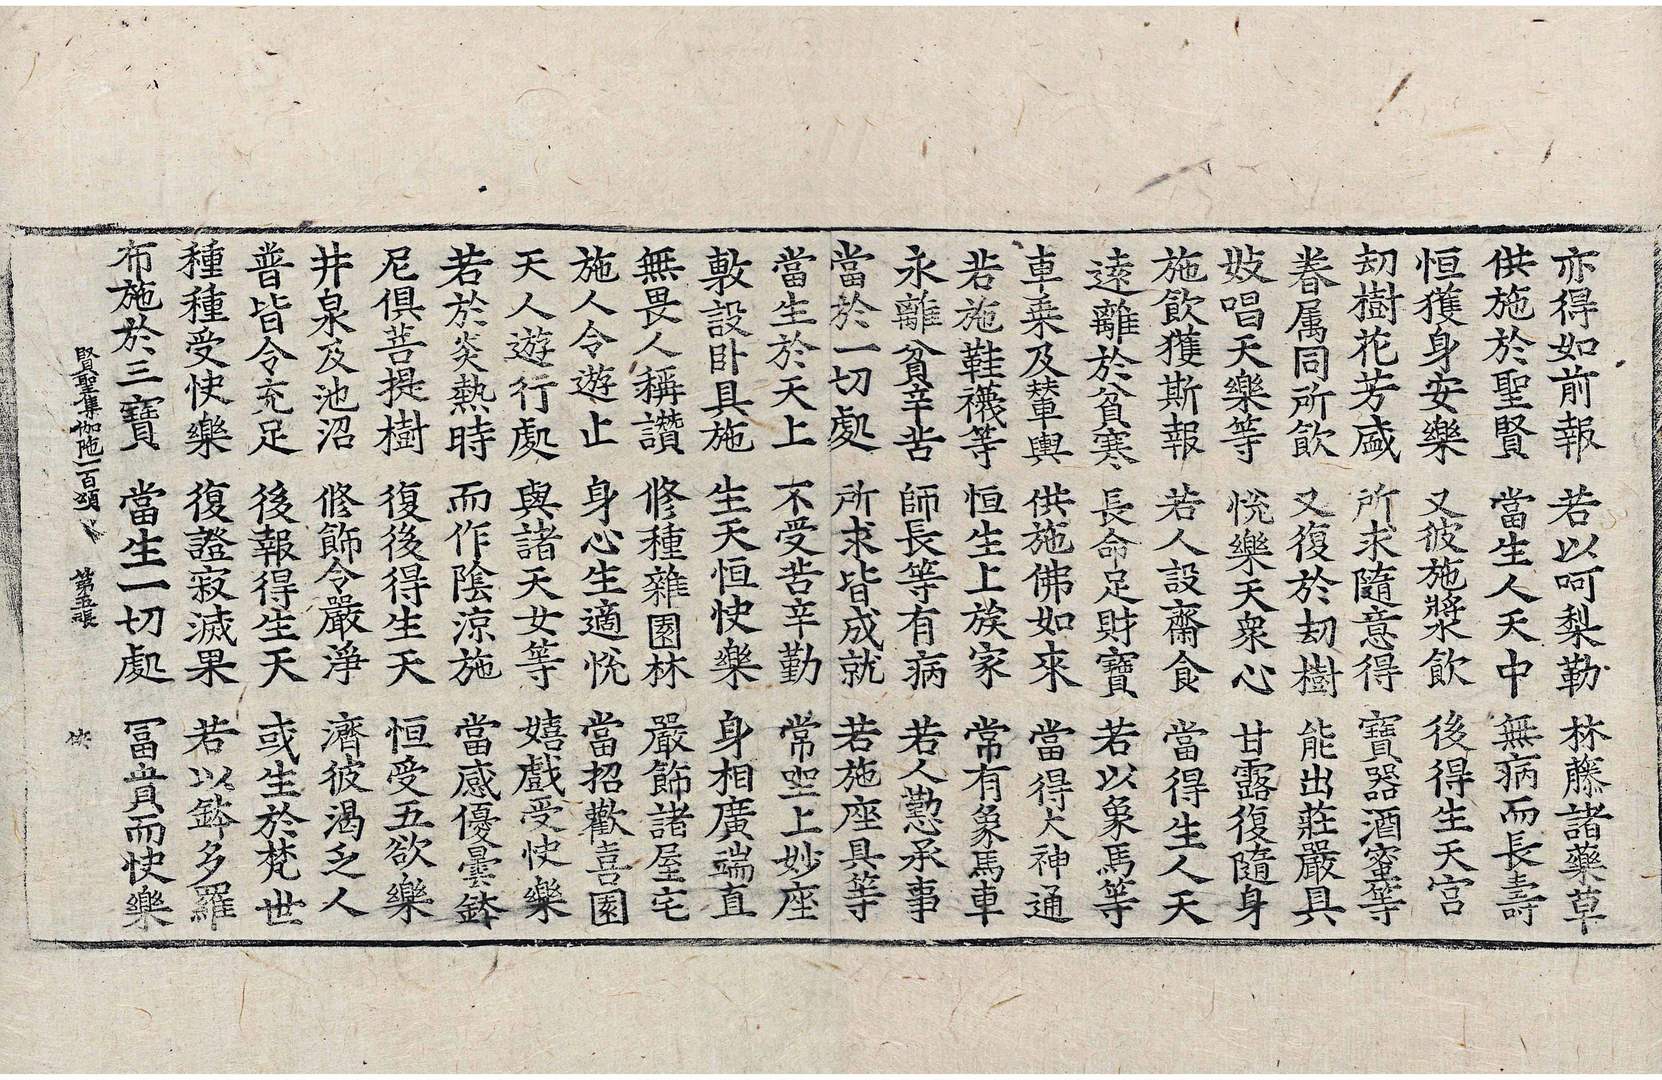 亦得如前報 若以呵梨勒 林藤諸藥草
供施於聖賢 當生人天中 無病而長壽
恒獲身安樂 又彼施漿飲 後得生天宮
刧樹花芳盛 所求隨意得 寶器酒蜜等
眷属同所飲 又復於刧樹 能出莊嚴具
妓唱天樂等 悅樂天衆心 甘露復隨身
施飲獲斯報 若人設齋食 當得生人天
遠離於貧寒 長命足財寶 若以象馬等
車乗及輦輿 供施佛如來 當得大神通
若施鞋襪等 恒生上族家 常有象馬車
永離貧辛苦 師長等有病 若人懃承事
當於一切處 所求皆成就 若施座具等
當生於天上 不受苦辛勤 常坐上妙座
敷設卧具施 生天恒快樂 身相廣端直
無畏人稱讚 修種雜園林 嚴飾諸屋宅
施人令遊止 身心生適悅 當招歡喜園
天人遊行處 與諸天女等 嬉戲受快樂
若於炎熱時 而作陰涼施 當感優曇鉢
尼俱菩提樹 復後得生天 恒受五欲樂
井泉及池沼 修飾令嚴淨 濟彼渴乏人
普皆令充足 後報得生天 或生於梵世
種種受快樂 復證寂滅果 若以鉢多羅
布施於三寶 當生一切處 冨貴而快樂
賢聖集伽陁一百頌 第五張